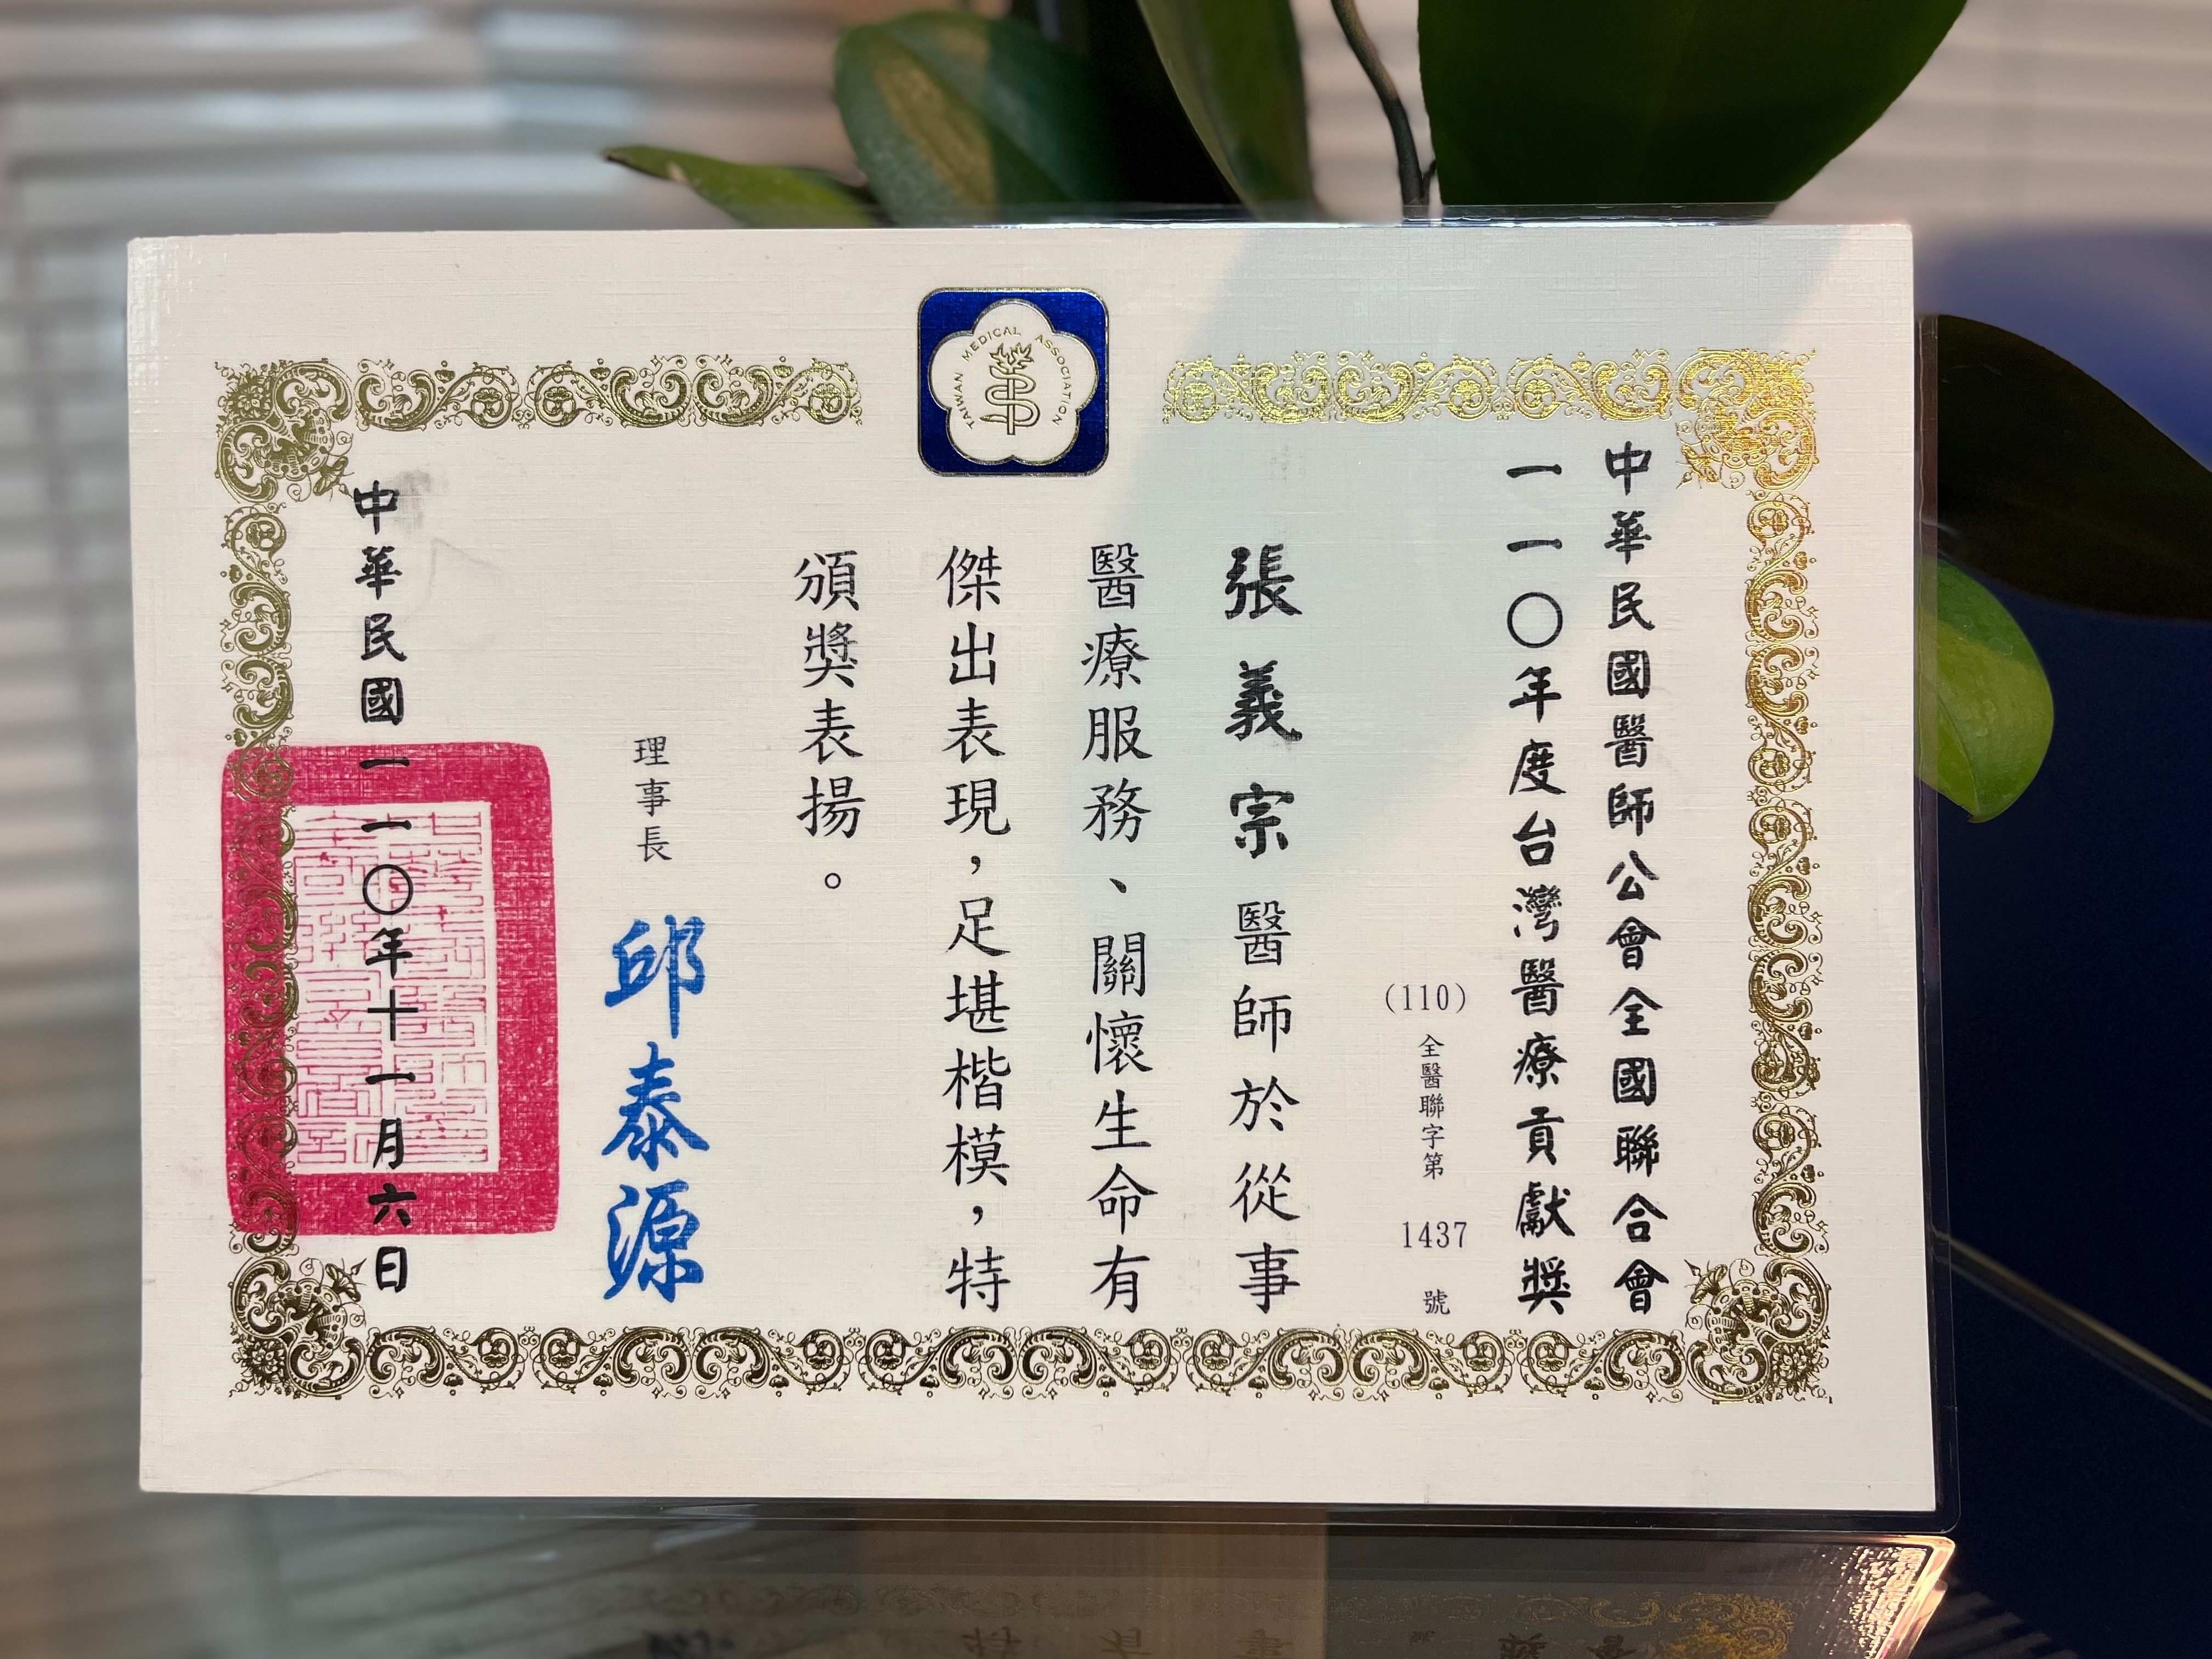 TAIWAN MEDICAL ASSOCIATION
中華民國醫師公會全國聯合會
一一〇年度台灣醫療貢獻獎
(110)全醫聯字第 1437 號
張義宗醫師於從事
醫療服務、關懷生命有
傑出表現，足堪楷模，特
頒獎表揚。
理事長 邱泰源
中華民國一一〇年十一月六日